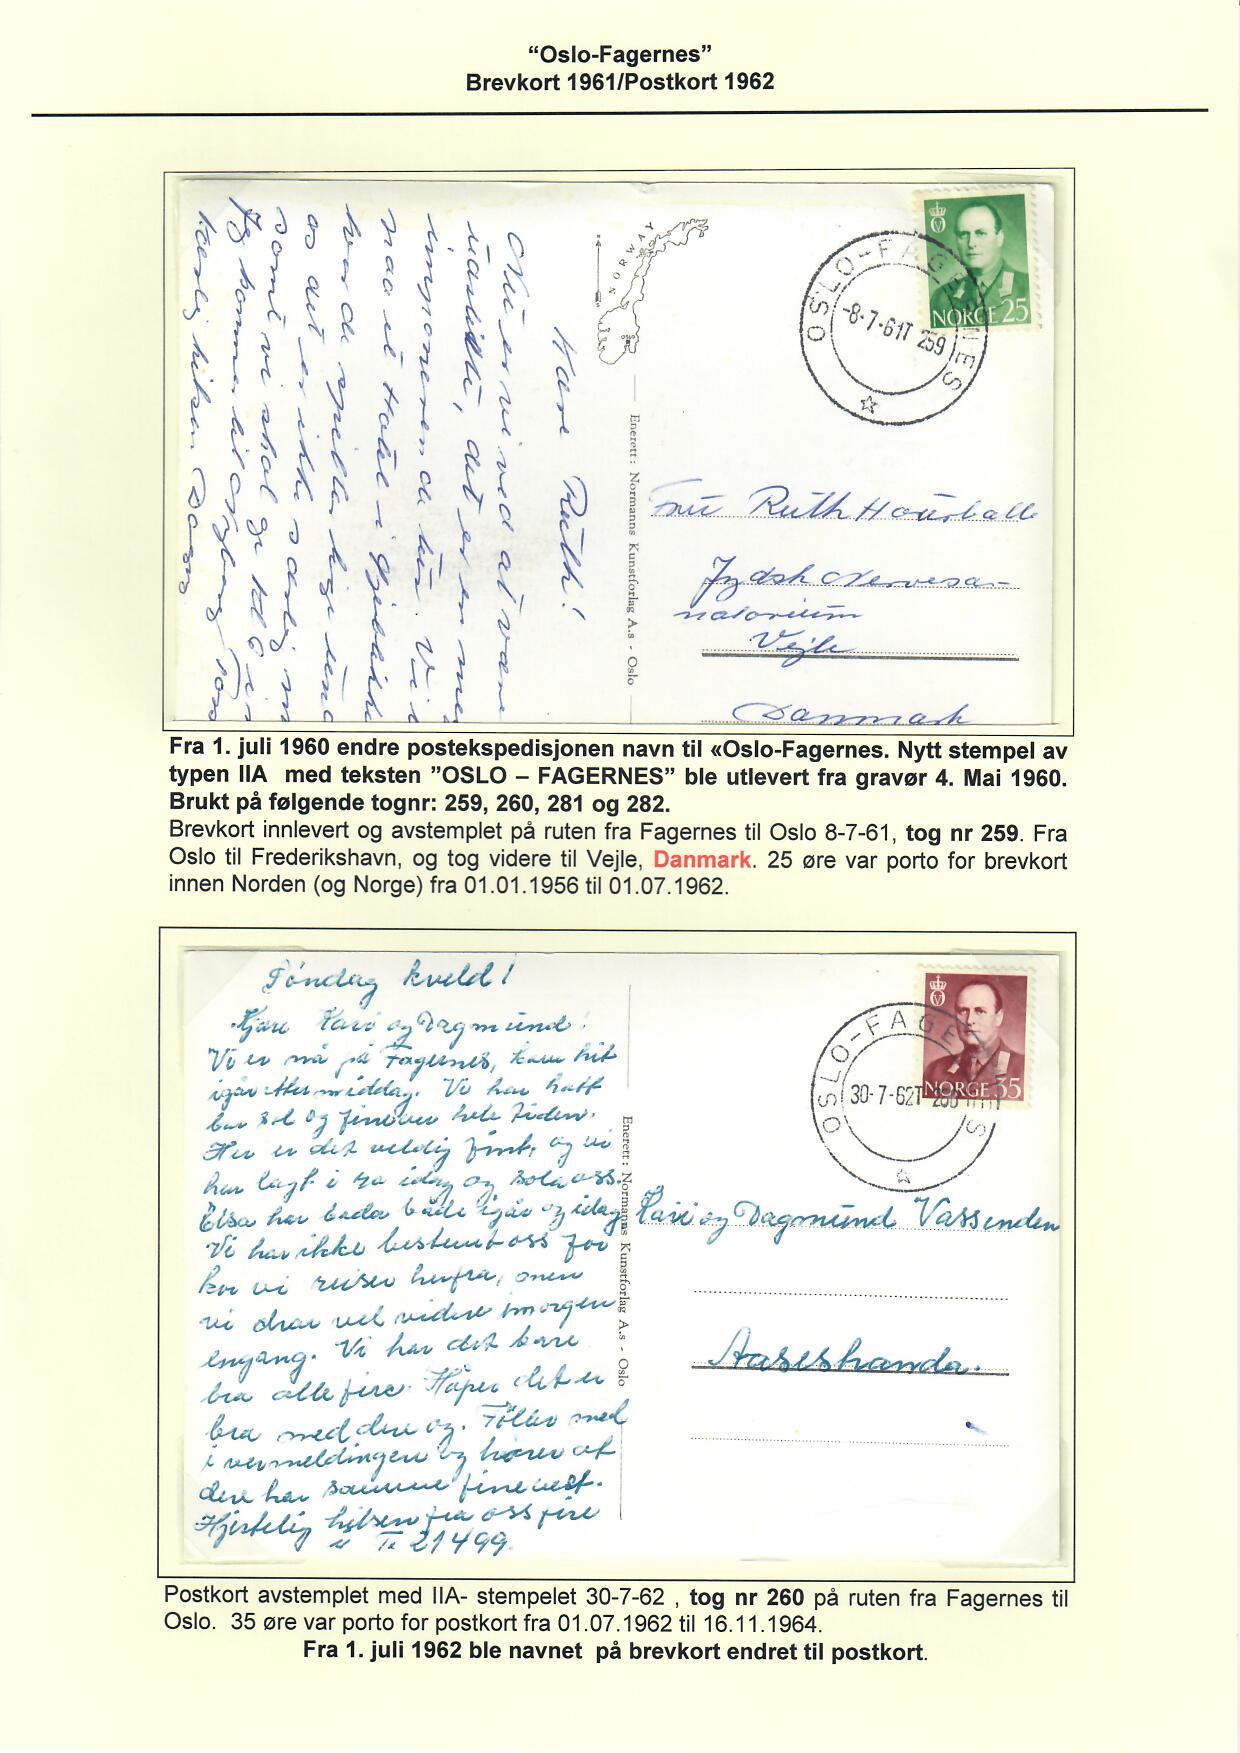 “Oslo-Fagernes”
Brevkort 1961/Postkort 1962
Kære Ruth!
Nu er vi ved at være
udslidt, det er en me
imponerende tur. Vi
maa et Hotel i Gjøvik
hvor de spiller hige
os det er ikke særlig m
somt vi skal
Jeg kommer til
Kærlig hilsen Dagny
NORWAY
OSLO
Enerett: Normanns Kunstforlag A.s - Oslo
NORGE 25
OSLO-FAGERNES
-8-7-61T 259
Fru Ruth Hourballe
Jydsk Nervesa-
natorium
Vejle
Danmark
Fra 1. juli 1960 endre postekspedisjonen navn til «Oslo-Fagernes. Nytt stempel av
typen IIA med teksten ”OSLO – FAGERNES” ble utlevert fra gravør 4. Mai 1960.
Brukt på følgende tognr: 259, 260, 281 og 282.
Brevkort innlevert og avstemplet på ruten fra Fagernes til Oslo 8-7-61, tog nr 259. Fra
Oslo til Frederikshavn, og tog videre til Vejle, Danmark. 25 øre var porto for brevkort
innen Norden (og Norge) fra 01.01.1956 til 01.07.1962.
Søndag kveld!
Kjære Kari og Dagmund!
Vi er nå på Fagernes, kom hit
igår ettermiddag. Vi har hatt
bar sol og finever hele tiden.
Her er det veldig fint, og vi
har lagt i ro idag og sola oss.
Elsa har bada både igår og idag
Vi har ikke bestemt oss for
kor vi reiser herfra, men
vi drar vel videre imorgen
engang. Vi har det bare
bra alle fire. Håper det er
bra med dere og. Følger med
i vermeldingen og hører at
dere har samme finevert.
Hjertelig hilsen fra oss fire
i Ti 21499.
Enerett: Normanns Kunstforlag A.s - Oslo
NORGE 35
OSLO-FAGERNES
30-7-62T 260
Kari og Dagmund Vassenden
Aaseshanda.
Postkort avstemplet med IIA- stempelet 30-7-62 , tog nr 260 på ruten fra Fagernes til
Oslo. 35 øre var porto for postkort fra 01.07.1962 til 16.11.1964.
Fra 1. juli 1962 ble navnet på brevkort endret til postkort.